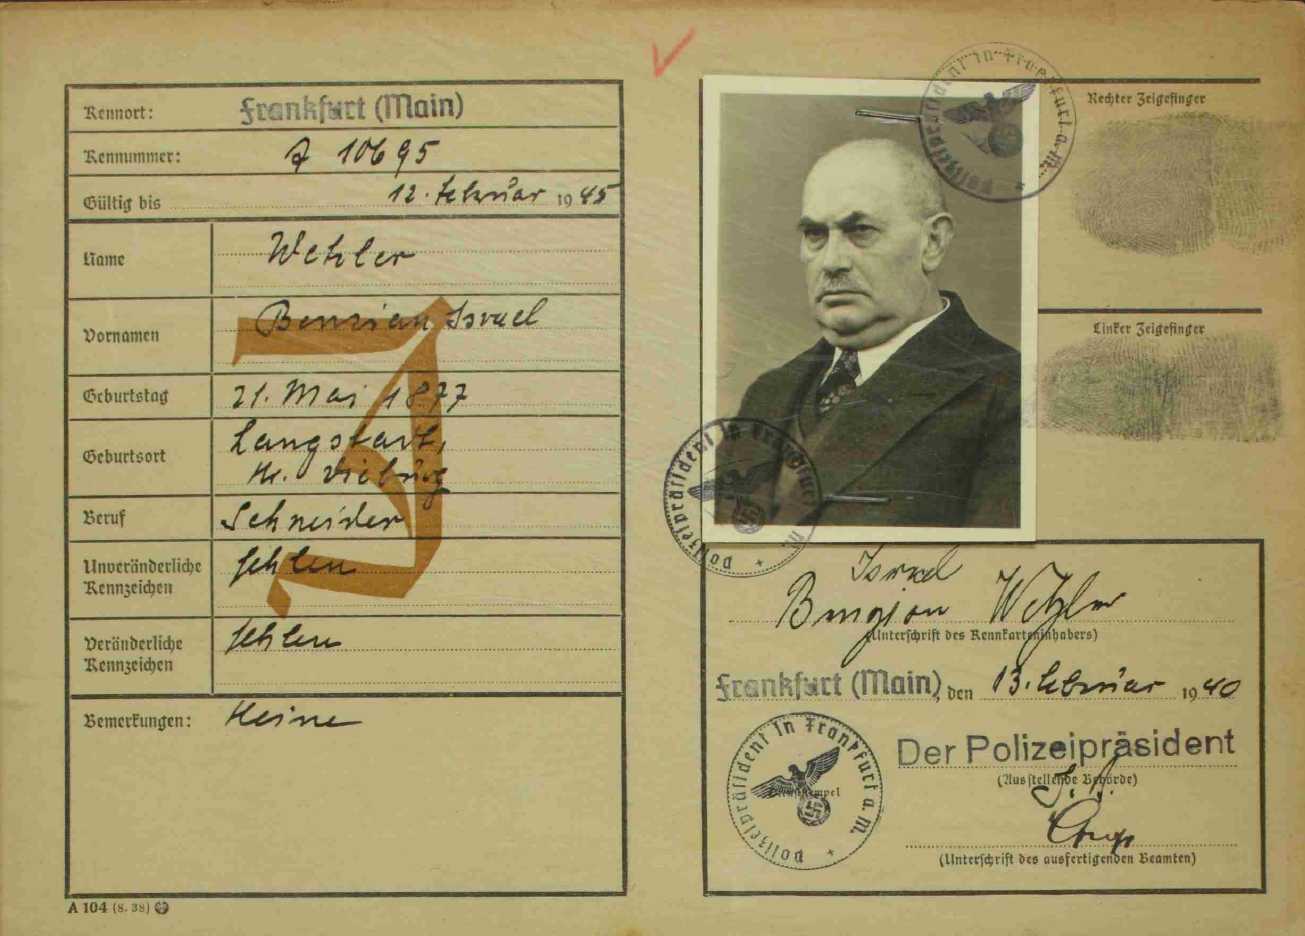 Kennort: Frankfurt (Main)
Kennummer: A 10695
Gültig bis 12. Februar 1945
Name Wetzler
Vornamen Benzian Israel
Geburtstag 21. Mai 1877
Geburtsort Langstadt,
Kr. Dieburg
Beruf Schneider
Unveränderliche
Kennzeichen fehlen
Veränderliche
Kennzeichen fehlen
Bemerkungen: Keine
J
A 104 (8. 38)
Rechter Zeigefinger
Linker Zeigefinger
Polizeipräsident in Frankfurt a. M.
Polizeipräsident in Frankfurt a. M.
Israel
Benzion Wetzler
(Unterschrift des Kennkarteninhabers)
Frankfurt (Main), den 13. Februar 1940
Polizeipräsident in Frankfurt a. M.
Dienststempel
Der Polizeipräsident
(Ausstellende Behörde)
(Unterschrift des ausfertigenden Beamten)